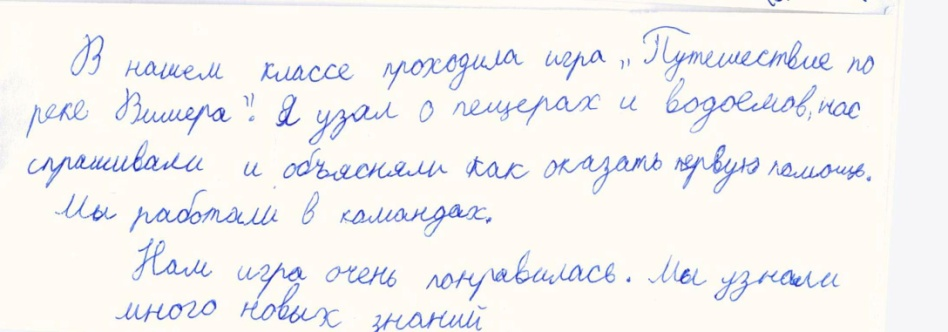 В нашем классе проходила игра „Путешествие по
реке Вишера". Я узал о пещерах и водоёмов, нас
спрашивали и объясняли как оказать первую помощь.
Мы работали в командах.
Нам игра очень понравилась. Мы узнали
много новых знаний